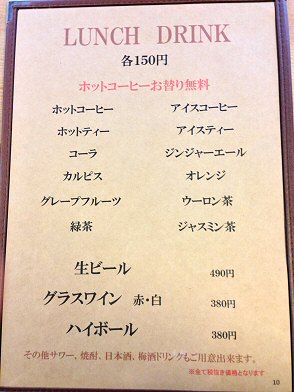 LUNCH DRINK
各150円
ホットコーヒーお替り無料
ホットコーヒー アイスコーヒー
ホットティー アイスティー
コーラ ジンジャーエール
カルピス オレンジ
グレープフルーツ ウーロン茶
緑茶 ジャスミン茶
生ビール 490円
グラスワイン 赤・白 380円
ハイボール 380円
その他サワー、焼酎、日本酒、梅酒ドリンクもご用意出来ます。
※全て税抜き価格となります
10